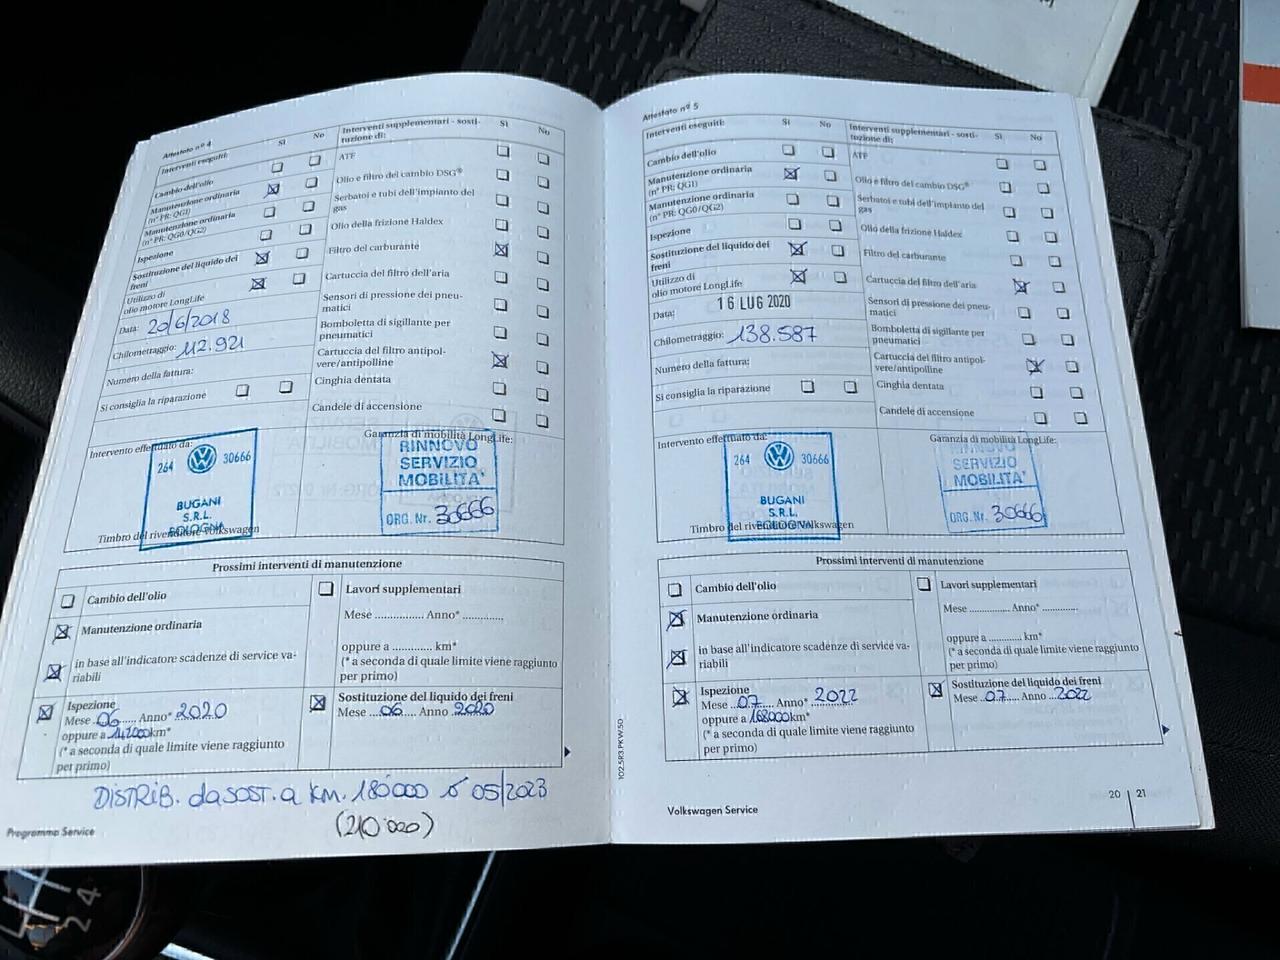 Attestato nº 4
Interventi eseguiti: Sì No
Cambio dell'olio
Manutenzione ordinaria
(n° PR: QG1)
Manutenzione ordinaria
(n° PR: QG0/QG2)
Ispezione
Sostituzione del liquido dei
freni
Utilizzo di
olio motore LongLife
Data: 20/6/2018
Chilometraggio: 112.921
Numero della fattura:
Si consiglia la riparazione
Interventi supplementari - sosti-
tuzione di: Sì No
ATF
Olio e filtro del cambio DSG®
Serbatoi e tubi dell'impianto del
gas
Olio della frizione Haldex
Filtro del carburante
Cartuccia del filtro dell'aria
Sensori di pressione dei pneu-
matici
Bomboletta di sigillante per
pneumatici
Cartuccia del filtro antipol-
vere/antipolline
Cinghia dentata
Candele di accensione
Intervento effettuato da:
264 30666
BUGANI
S.R.L.
BOLOGNA
Timbro del rivenditore Volkswagen
Garanzia di mobilità LongLife:
RINNOVO
SERVIZIO
MOBILITA'
ORG. Nr. 30666
Prossimi interventi di manutenzione
Cambio dell'olio
Manutenzione ordinaria
in base all'indicatore scadenze di service va-
riabili
Ispezione
Mese ..06...... Anno* 2020
oppure a 142000km*
(* a seconda di quale limite viene raggiunto
per primo)
Lavori supplementari
Mese ............... Anno* ............
oppure a ............ km*
(* a seconda di quale limite viene raggiunto
per primo)
Sostituzione del liquido dei freni
Mese ....06..... Anno ..2020
DISTRIB. da SOST. a KM. 180000 o 05/2023
(210'000)
Programma Service
Attestato nº 5
Interventi eseguiti: Sì No
Cambio dell'olio
Manutenzione ordinaria
(n° PR: QG1)
Manutenzione ordinaria
(n° PR: QG0/QG2)
Ispezione
Sostituzione del liquido dei
freni
Utilizzo di
olio motore LongLife
Data: 16 LUG 2020
Chilometraggio: 138.587
Numero della fattura:
Si consiglia la riparazione
Interventi supplementari - sosti-
tuzione di: Sì No
ATF
Olio e filtro del cambio DSG®
Serbatoi e tubi dell'impianto del
gas
Olio della frizione Haldex
Filtro del carburante
Cartuccia del filtro dell'aria
Sensori di pressione dei pneu-
matici
Bomboletta di sigillante per
pneumatici
Cartuccia del filtro antipol-
vere/antipolline
Cinghia dentata
Candele di accensione
Intervento effettuato da:
264 30666
BUGANI
S.R.L.
BOLOGNA
Timbro del rivenditore Volkswagen
Garanzia di mobilità LongLife:
RINNOVO
SERVIZIO
MOBILITA'
ORG. Nr. 30666
Prossimi interventi di manutenzione
Cambio dell'olio
Manutenzione ordinaria
in base all'indicatore scadenze di service va-
riabili
Ispezione
Mese ..07...... Anno* 2022
oppure a 168000km*
(* a seconda di quale limite viene raggiunto
per primo)
Lavori supplementari
Mese ............... Anno* ............
oppure a ............ km*
(* a seconda di quale limite viene raggiunto
per primo)
Sostituzione del liquido dei freni
Mese ...07..... Anno ...2022
102.5R3.PKW.50
Volkswagen Service
20 | 21
2 4